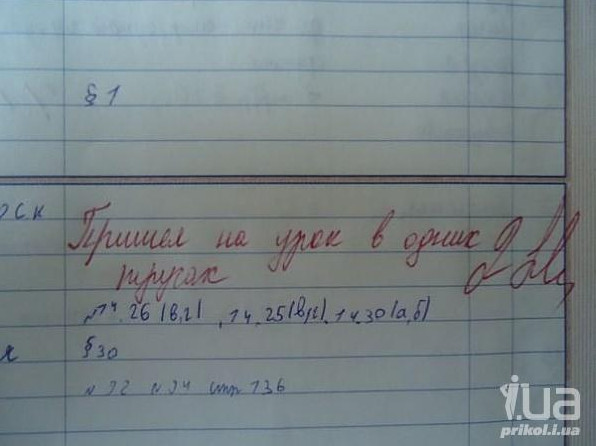 § 1
оск
Пришел на урок в одних
трусах
№14.26(в,г), 14.25(в,г), 14.30(а,б)
§30
стр 136
i.ua
prikol.i.ua